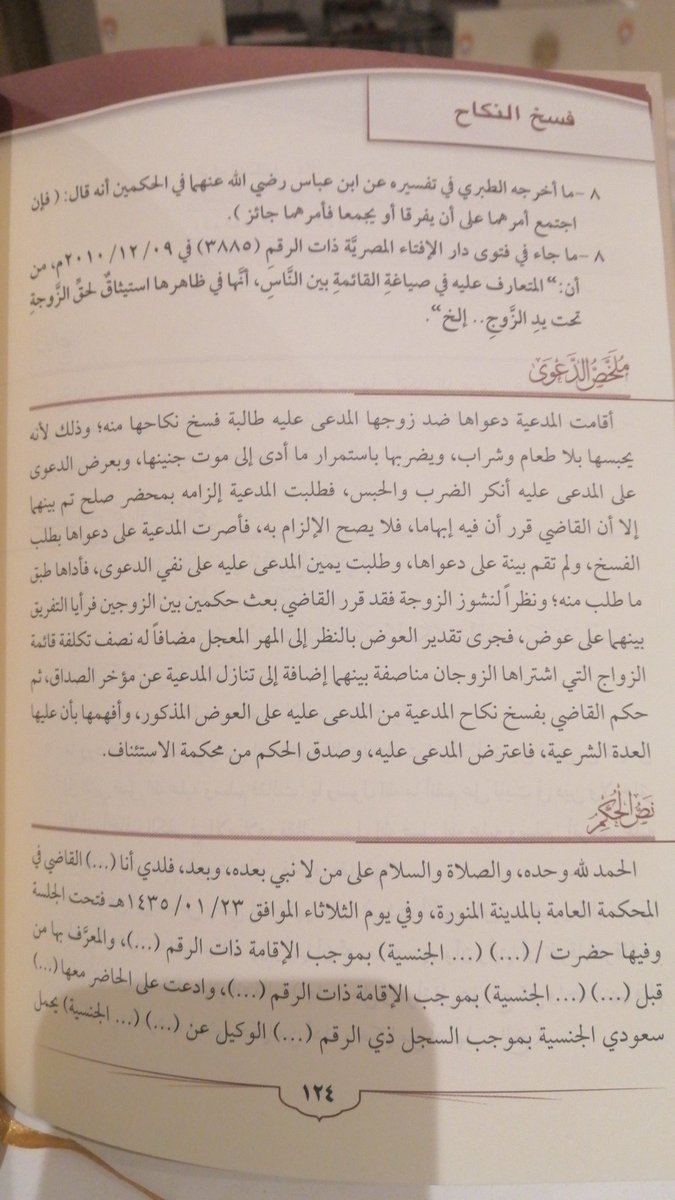 فسخ النكاح
٨ -ما أخرجه الطبري في تفسيره عن ابن عباس رضي الله عنهما في الحكمين أنه قال: ( فإن
اجتمع أمرهما على أن يفرقا أو يجمعا فأمرهما جائز ).
٨ -ما جاء في فتوى دار الإفتاء المصريَّة ذات الرقم (٣٨٨٥) في ٠٩/ ١٢/ ٢٠١٠م، من
أن: “المتعارف عليه في صياغةِ القائمةِ بين النَّاسِ، أنَّها في ظاهرها استيثاقٌ لحقِّ الزَّوجةِ
تحت يدِ الزَّوجِ.. إلخ“.
مُلَخَّصُ الدَّعْوَى
أقامت المدعية دعواها ضد زوجها المدعى عليه طالبة فسخ نكاحها منه؛ وذلك لأنه
يحبسها بلا طعام وشراب، ويضربها باستمرار ما أدى إلى موت جنينها، وبعرض الدعوى
على المدعى عليه أنكر الضرب والحبس، فطلبت المدعية إلزامه بمحضر صلح تم بينهما
إلا أن القاضي قرر أن فيه إبهاما، فلا يصح الإلزام به، فأصرت المدعية على دعواها بطلب
الفسخ، ولم تقم بينة على دعواها، وطلبت يمين المدعى عليه على نفي الدعوى، فأداها طبق
ما طلب منه؛ ونظراً لنشوز الزوجة فقد قرر القاضي بعث حكمين بين الزوجين فرأيا التفريق
بينهما على عوض، فجرى تقدير العوض بالنظر إلى المهر المعجل مضافاً له نصف تكلفة قائمة
الزواج التي اشتراها الزوجان مناصفة بينهما إضافة إلى تنازل المدعية عن مؤخر الصداق، ثم
حكم القاضي بفسخ نكاح المدعية من المدعى عليه على العوض المذكور، وأفهمها بأن عليها
العدة الشرعية، فاعترض المدعى عليه، وصدق الحكم من محكمة الاستئناف.
نَصُّ الْحُكْمِ
الحمد لله وحده، والصلاة والسلام على من لا نبي بعده، وبعد، فلدي أنا (...) القاضي في
المحكمة العامة بالمدينة المنورة، وفي يوم الثلاثاء الموافق ٢٣ /٠١ /١٤٣٥هـ فتحت الجلسة
وفيها حضرت / (...) (... الجنسية) بموجب الإقامة ذات الرقم (...)، والمعرَّف بها من
قبل (...) (... الجنسية) بموجب الإقامة ذات الرقم (...)، وادعت على الحاضر معها (...)
سعودي الجنسية بموجب السجل ذي الرقم (...) الوكيل عن (...) (... الجنسية) يحمل
١٢٤